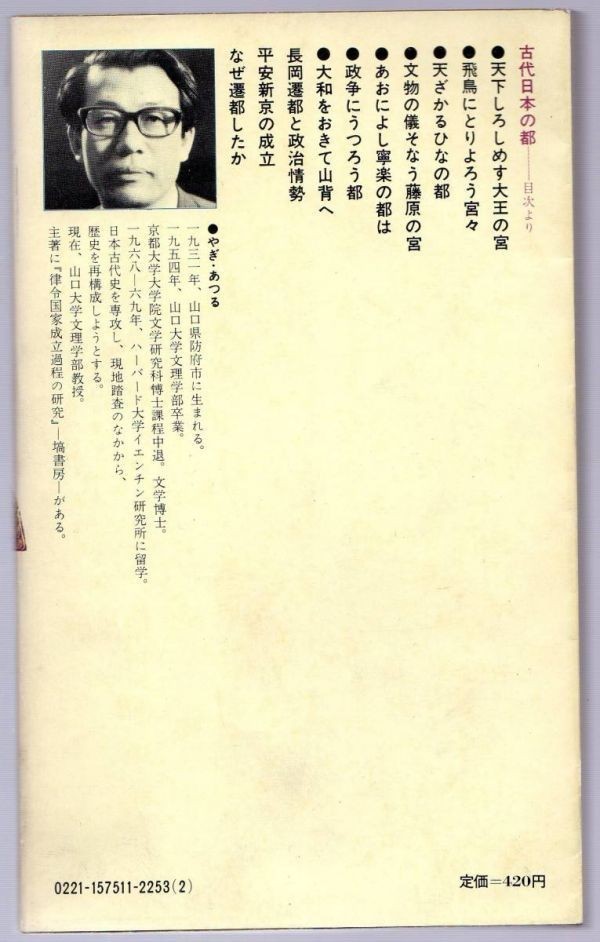 古代日本の都――目次より
●天下しろしめす大王の宮
●飛鳥にとりよろう宮々
●天ざかるひなの都
●文物の儀そなう藤原の宮
●あおによし寧楽の都は
●政争にうつろう都
●大和をおきて山背へ
長岡遷都と政治情勢
平安新京の成立
なぜ遷都したか
●やぎ・あつる
一九三一年、山口県防府市に生まれる。
一九五四年、山口大学文理学部卒業。
京都大学大学院文学研究科博士課程中退。文学博士。
一九六八―六九年、ハーバード大学イエンチン研究所に留学。
日本古代史を専攻し、現地踏査のなかから、
歴史を再構成しようとする。
現在、山口大学文理学部教授。
主著に『律令国家成立過程の研究』―塙書房―がある。
0221-157511-2253(2)
定価=420円